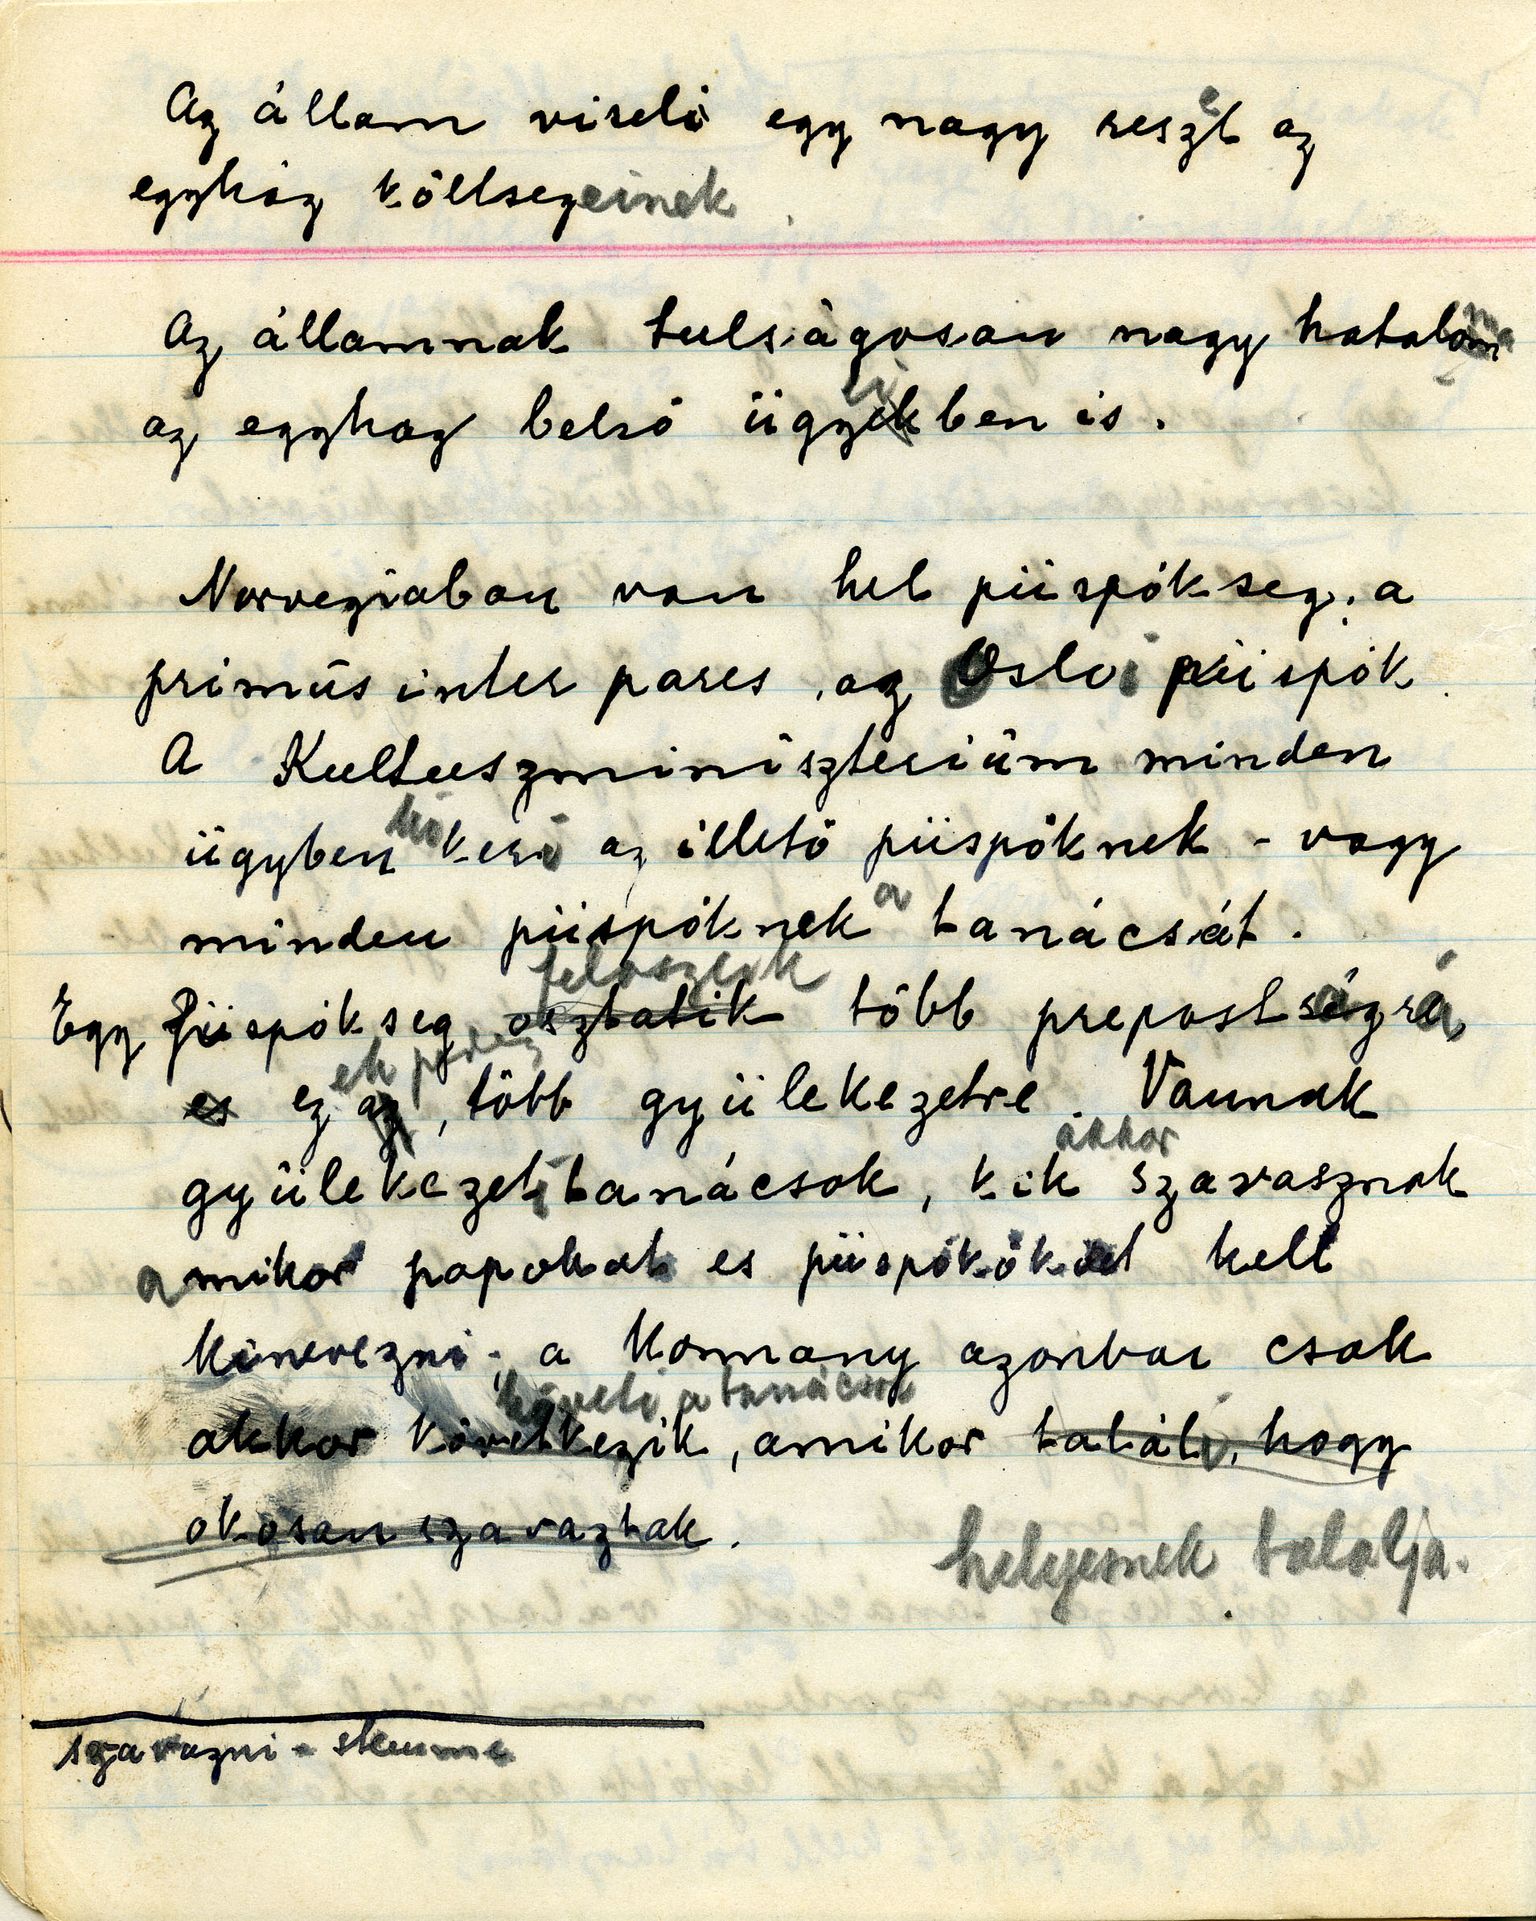 Az állam viseli egy nagy reszét az
egyház költsegeinek
Az államnak tulságosan nagy hatalma
az egyhaz belsö ügyeikben is.
Norvegiaban van het püspökseg; a
primüs inter pares, az Osloi püspök
A Kultuszminiszteriüm minden
ügyben ki kéri az illetö püspöknek - vagy
minden püspöknek a tanácsát.
feloszlik
Egy Püspökseg osztatik több prepostságra
ek pedig
es ez az, több gyülekezetre. Vannak
akkor
gyülekezeti tanácsok, kik szavasznak
amikor papokat es püspököket kell
kinevezni; a Kormany azonban csak
követi a tanácsot
akkor következik, amikor talál, hogy
okosan szavaztak.
helyesnek talalja.
szavazni - stemme